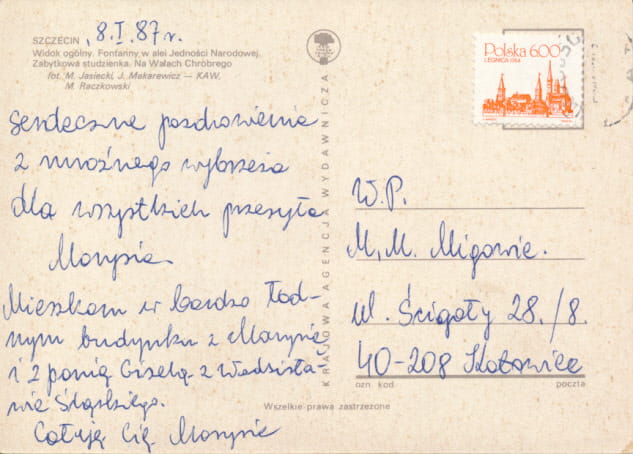 SZCZECIN
8.I.87 r.
Widok ogólny. Fontanny w alei Jedności Narodowej.
Zabytkowa studzienka. Na Wałach Chrobrego
fot. M. Jasiecki, J. Makarewicz — KAW,
M. Raczkowski
Serdeczne pozdrowienia
z mroźnego wybrzeża
dla wszystkich przesyła
Marysia
Mieszkam w bardzo ład-
nym budynku z Marysią
i z panią Gizelą z Wodzisła-
wia Śląskiego.
Całuję Cię Marysia
KRAJOWA AGENCJA WYDAWNICZA
Polska 6.00 zł
LEGNICA 1744
W.P.
M.M. Migowie.
ul. Ścigały 28./8.
40-208 Katowice
ozn. kod
poczta
Wszelkie prawa zastrzeżone